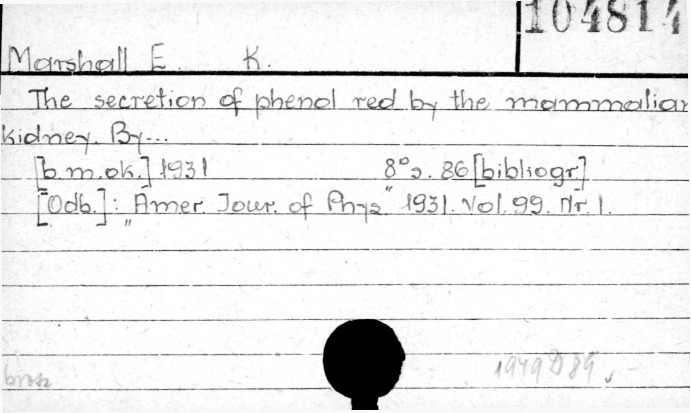 104814
Marshall E. K.
The secretion of phenol red by the mammalian
kidney. By...
[b.m.ok.] 1931 8° s. 86 [bibliogr.]
[Odb.]: "Amer. Jour. of Phys" 1931. Vol. 99. Nr. 1.
brosz 1949 D 89